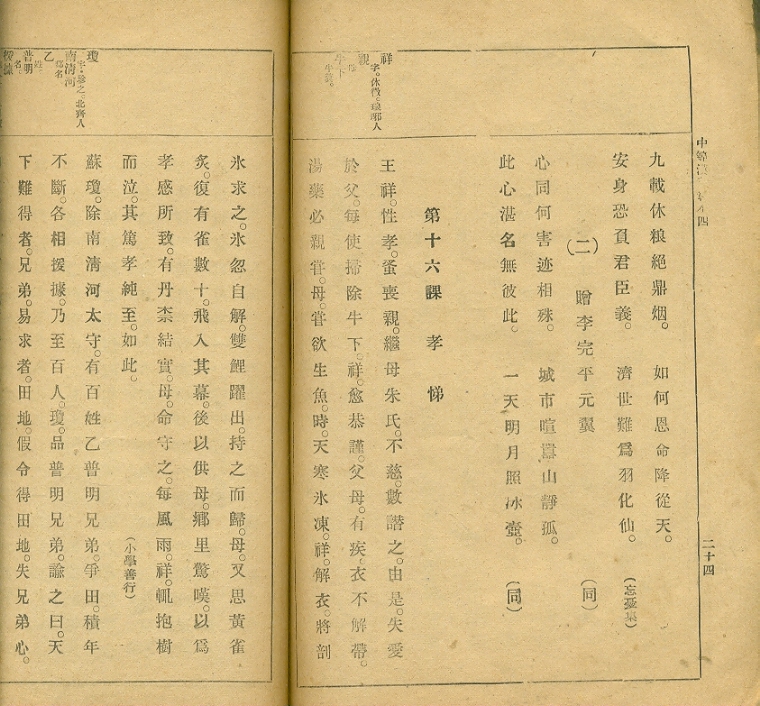 九載休粮絶鼎烟。 如何恩命降從天。
安身恐負君臣義。 濟世難爲羽化仙。 (忘憂集)
(二) 贈李完平元翼 (同)
心同何害迹相殊。 城市喧囂山靜孤。
此心湛名無彼此。 一天明月照冰壺。 (同)
第十六課 孝悌
王祥。性孝。蚤喪親。繼母朱氏。不慈。數譖之。由是。失愛
於父。每使掃除牛下。祥。愈恭謹。父母。有疾。衣不解帶。
湯藥必親甞。母。甞欲生魚。時。天寒氷凍。祥。解衣。將剖
祥 字。休徵。琅邪人
親
牛下
二十四
氷求之。氷忽自解。雙鯉躍出。持之而歸。母。又思黃雀
炙。復有雀數十。飛入其幕。後以供母。鄕里驚嘆。以爲
孝感所致。有丹柰結實。母。命守之。每風雨。祥。輒抱樹
而泣。其篤孝純至。如此。 (小學善行)
蘇瓊。除南淸河太守。有百姓乙普明兄弟。爭田。積年
不斷。各相援據。乃至百人。瓊。品普明兄弟。諭之曰。天
下難得者。兄弟。易求者。田地。假令得田地。失兄弟心。
瓊 字。珍之。北齊人
南淸河 郡名
乙 姓。
普明 名。
援據